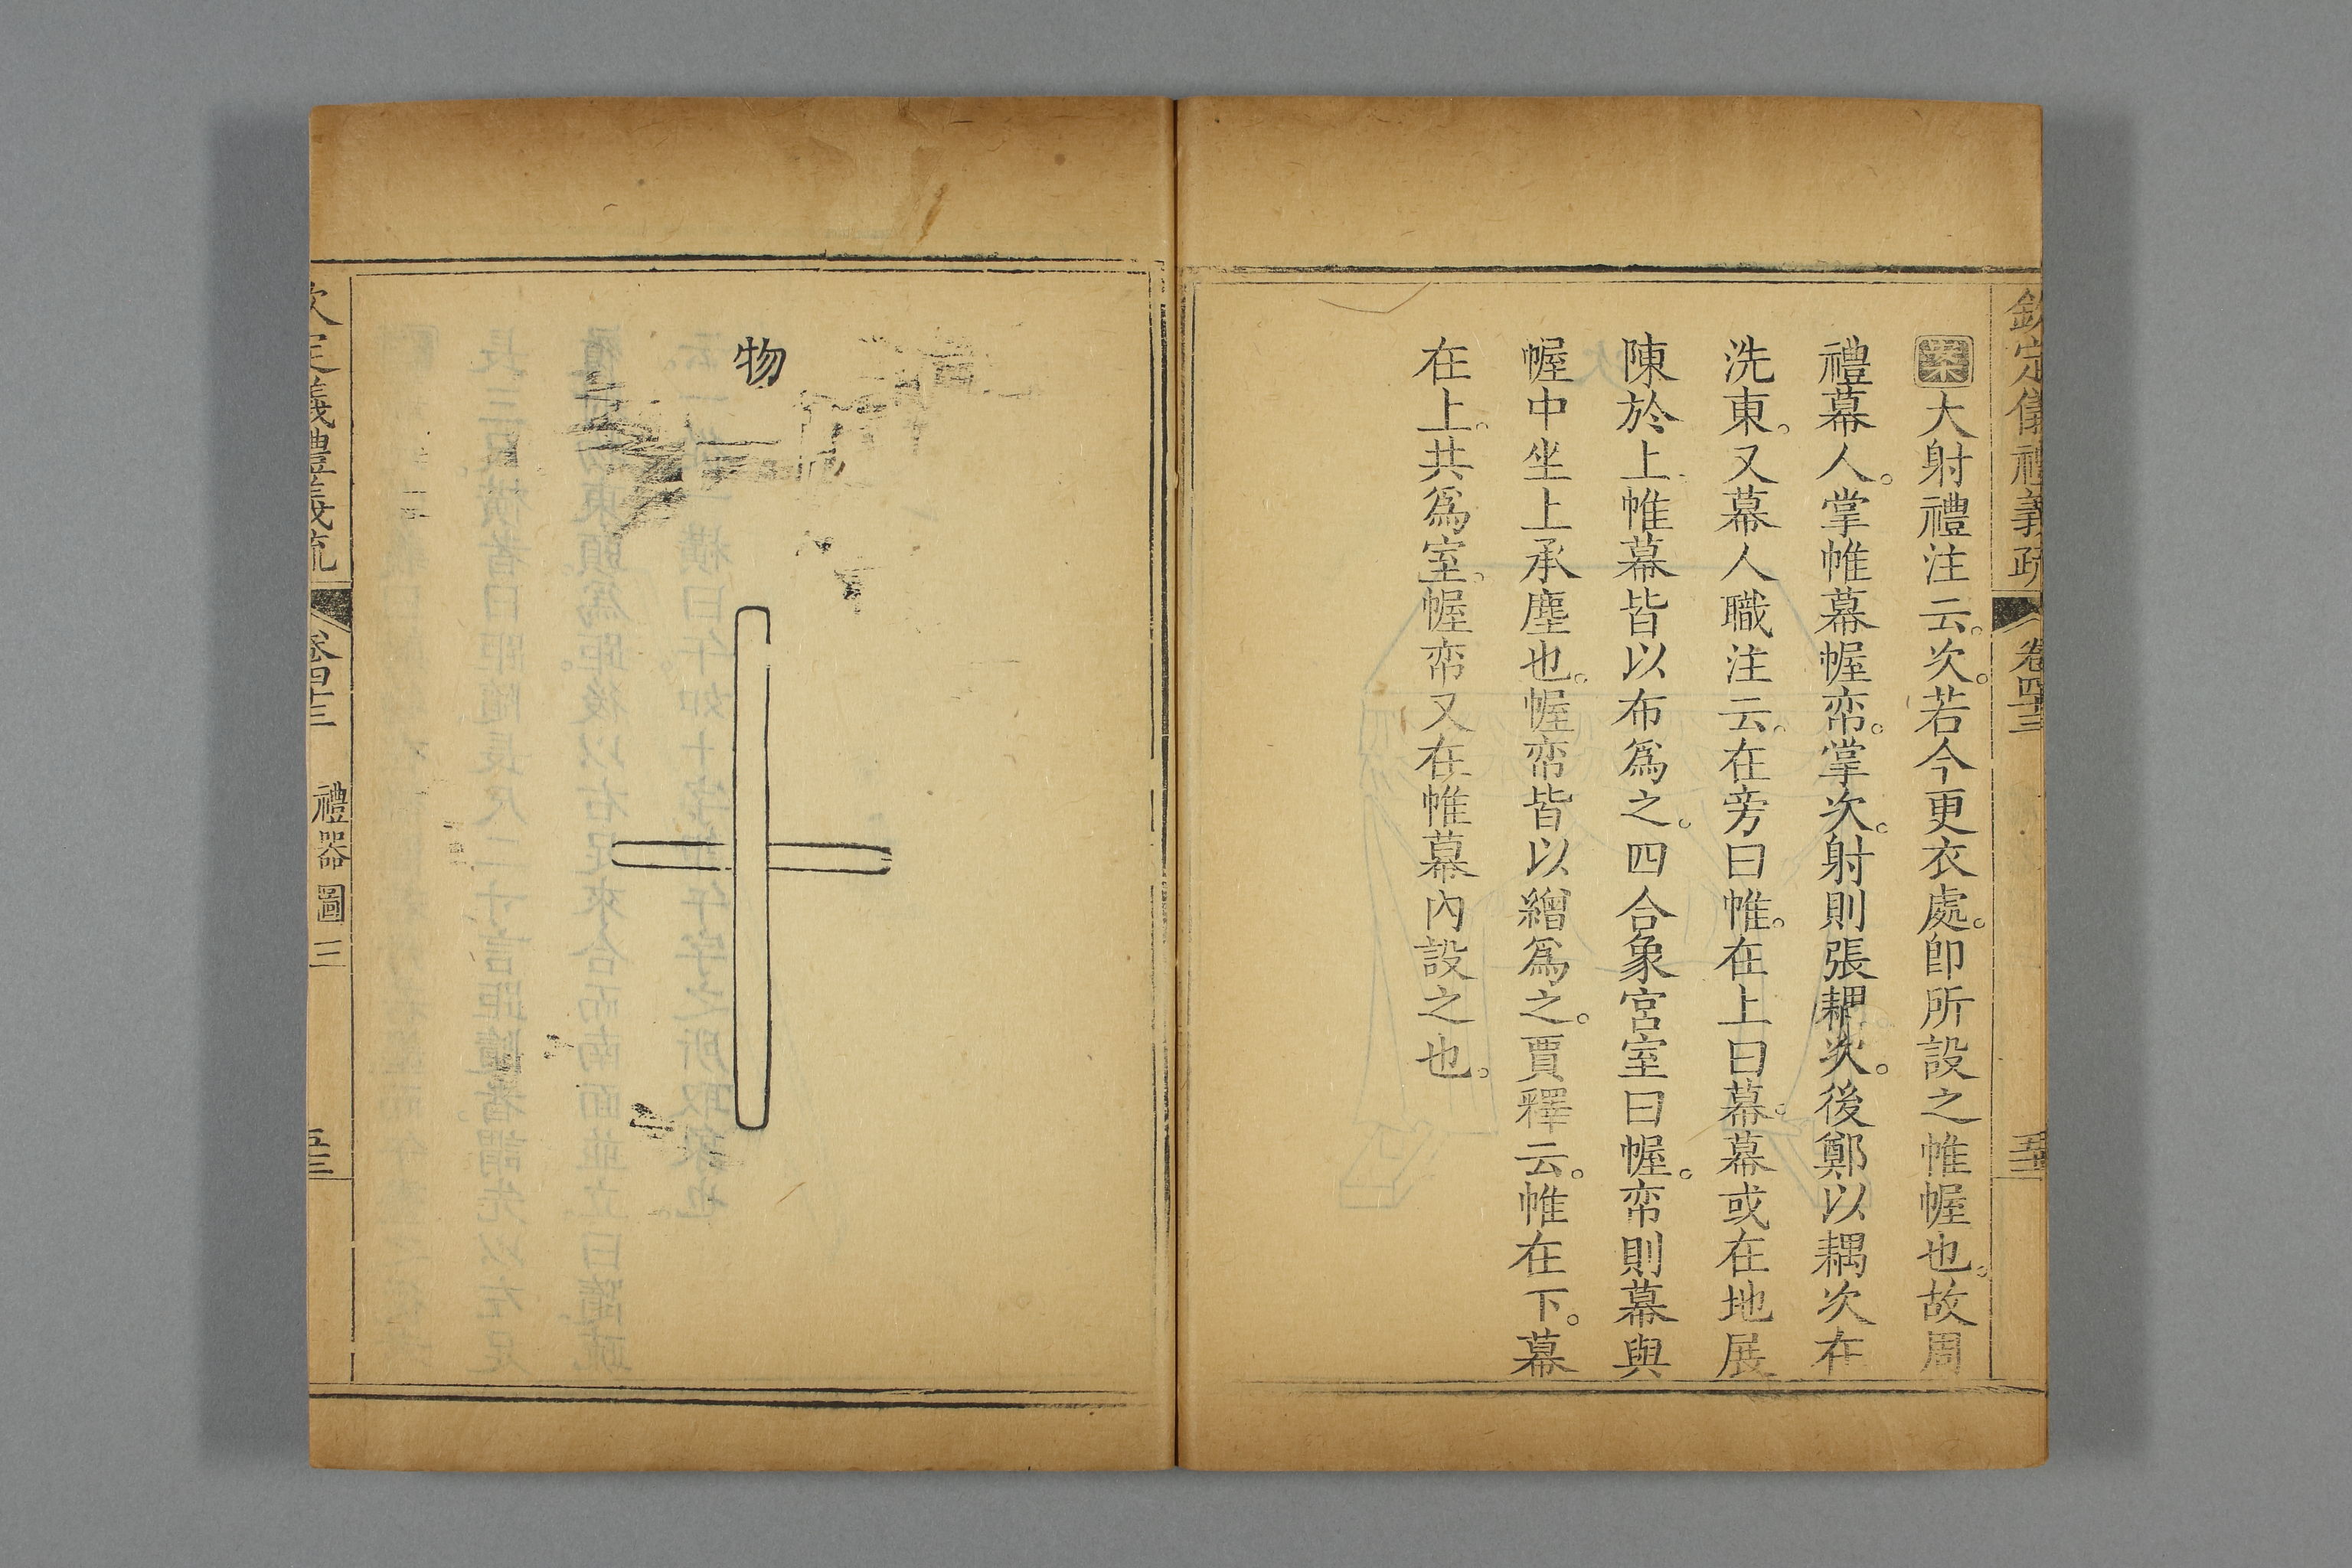 欽定儀禮義疏 卷四十三
案大射禮注云。次。若今更衣處。卽所設之帷幄也。故周
禮幕人。掌帷幕幄帟。掌次。射則張耦次。後鄭以耦次在
洗東。又幕人職注云。在旁曰帷。在上曰幕。幕或在地展
陳於上帷幕皆以布爲之。四合象宮室曰幄。帟則幕與
幄中坐上承塵也。幄帟皆以繒爲之。賈釋云。帷在下。幕
在上。共爲室。幄帟又在帷幕內設之也。
物
欽定儀禮義疏 卷四十三 禮器圖三 五十三